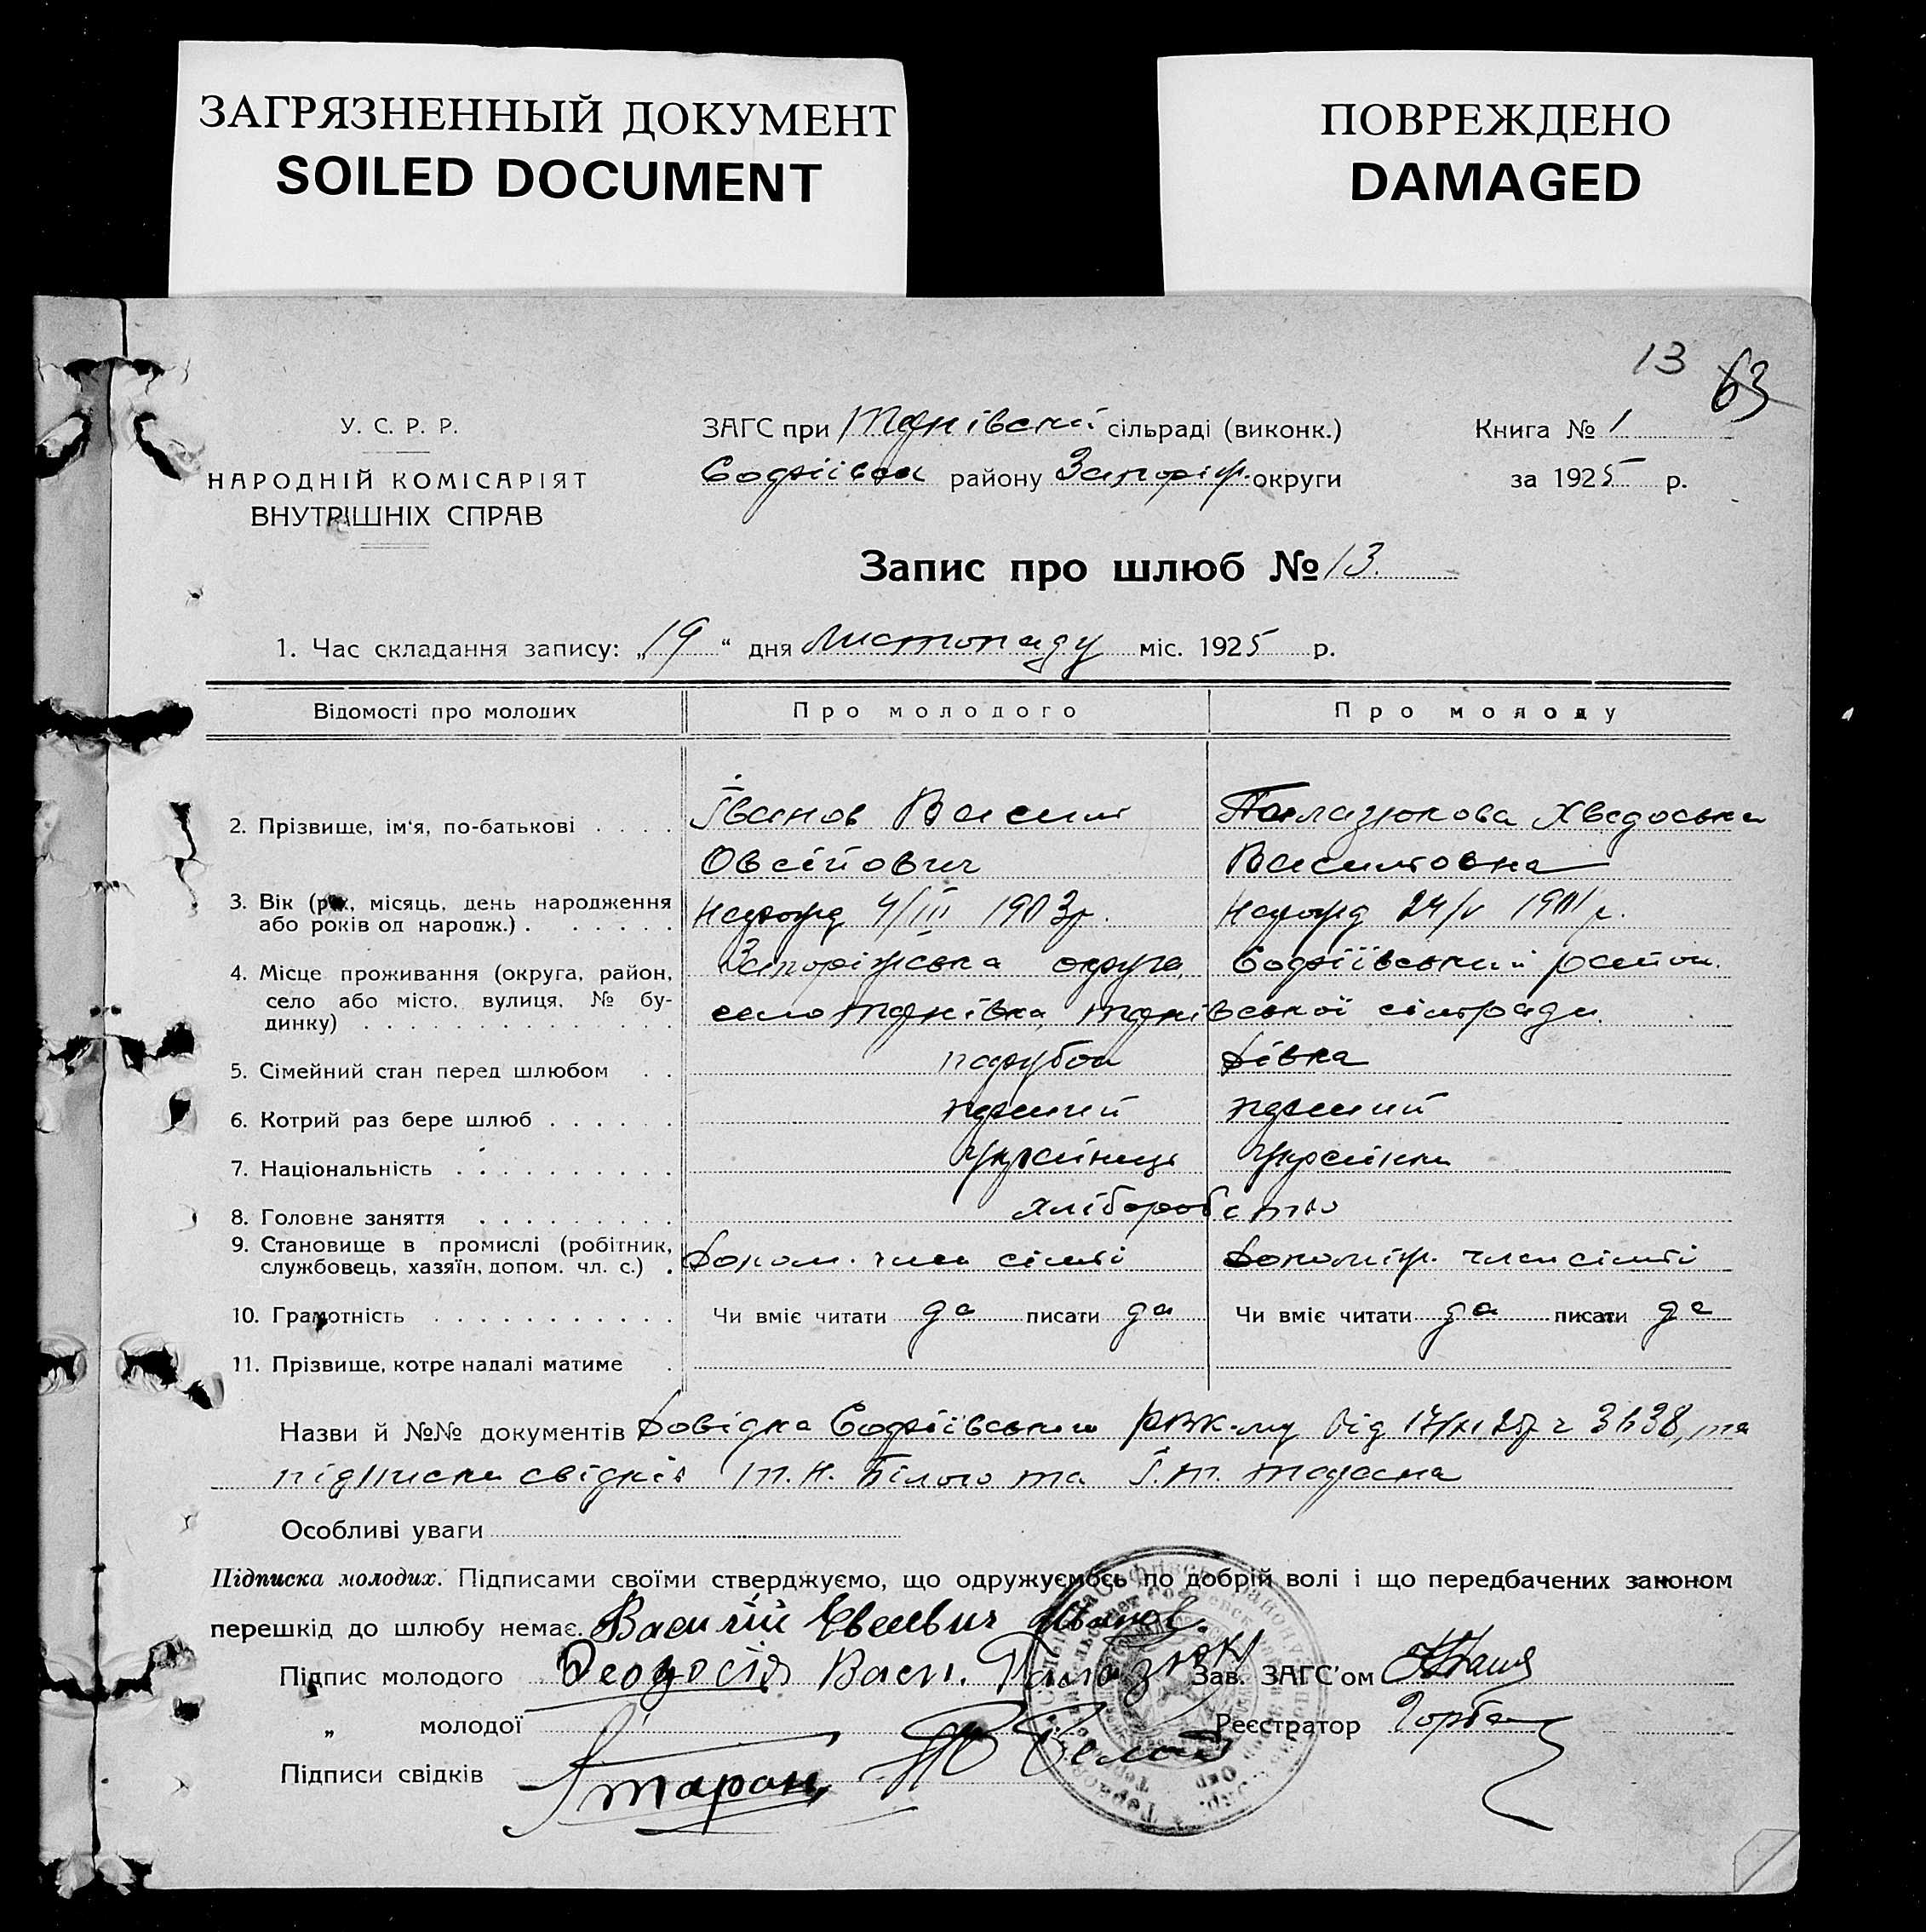 ЗАГРЯЗНЕННЫЙ ДОКУМЕНТ
SOILED DOCUMENT
ПОВРЕЖДЕНО
DAMAGED
13 63
У. С. Р. Р.
НАРОДНІЙ КОМІСАРІЯТ
ВНУТРІШНІХ СПРАВ
ЗАГС при сільраді (виконк.)
Софіївськ району Запоріж. округи
Книга № 1
за 1925 р.
Запис про шлюб № 13.
1. Час складання запису: „19“ дня Листопаду міс. 1925 р.
Відомості про молодих Про молодого Про молоду
2. Прізвище, ім'я, по-батькові Іванов Василь Палазюкова Хведоська
Овсійович Василовна
3. Вік (рік, місяць, день народження
або років од народж.) народ 4/III 1903р. народ 24/V 1901р.
4. Місце проживання (округа, район, Запоріжська округа, Софіївський район.
село або місто, вулиця, № бу-
динку) село сільради.
5. Сімейний стан перед шлюбом парубок дівка
6. Котрий раз бере шлюб перший перший
7. Національність українець українка
8. Головне заняття хліборобство
9. Становище в промислі (робітник,
службовець, хазяїн, допом. чл. с.) допом. член сімьі допоміж. член сімьі
10. Грамотність Чи вміє читати да писати да Чи вміє читати да писати да
11. Прізвище, котре надалі матиме
Назви й №№ документів Довідка Софіївського РВК-му від 17/XI 25р ч 3638, та
підписки свідків Т. Н. Білого та І. Т.
Особливі уваги
Підписка молодих. Підписами своїми стверджуємо, що одружуємось по добрій волі і що передбачених законом
перешкід до шлюбу немає. Василий Иванов.
Підпис молодого Феодосія Васил. Зав. ЗАГС'ом
„ молодої Реєстратор Горбань
Підписи свідків Таран Белый